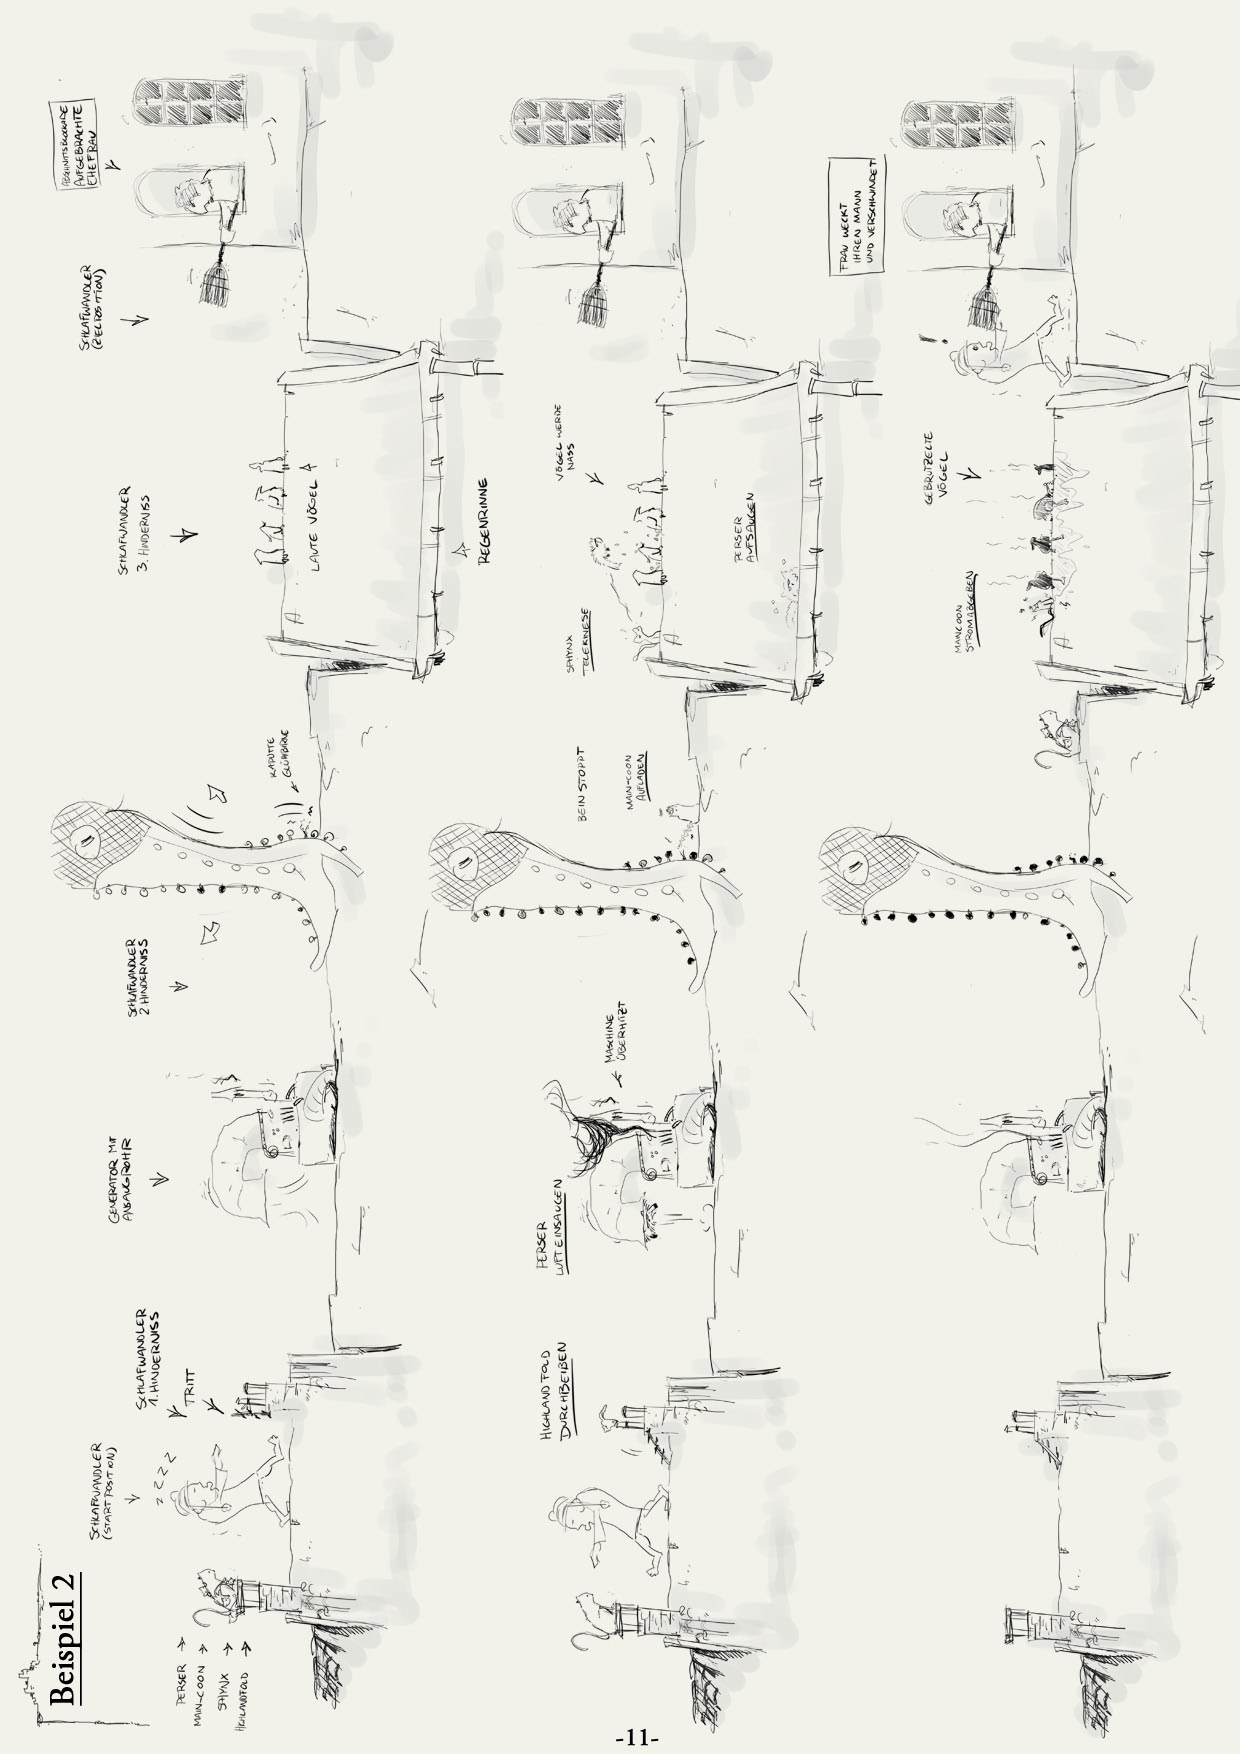 Beispiel 2
PERSER
MAIN-COON
SPHYNX
HIGHLANDFOLD
SCHLAFWANDLER
(STARTPOSITION)
ZZZZ
SCHLAFWANDLER
1. HINDERNISS
TRITT
GENERATOR MIT
ANSAUGROHR
SCHLAFWANDLER
2. HINDERNISS
KAPUTTE
GLÜHBIRNE
SCHLAFWANDLER
3. HINDERNISS
LAUTE VÖGEL
REGENRINNE
SCHLAFWANDLER
(ZIELPOSITION)
ABSCHNITTSBLOCKADE
AUFGEBRACHTE
EHEFRAU
HIGHLAND FOLD
DURCHBEIßEN
PERSER
LUFT EINSAUGEN
MASCHINE
ÜBERHITZT
BEIN STOPPT
MAIN-COON
AUFLADEN
SPHYNX
TELEKINESE
VÖGEL WERDE
NASS
PERSER
AUFSAUGEN
MAINCOON
STROMABGEBEN
GEBRUTZELTE
VÖGEL
FRAU WECKT
IHREN MANN
UND VERSCHWINDET
-11-